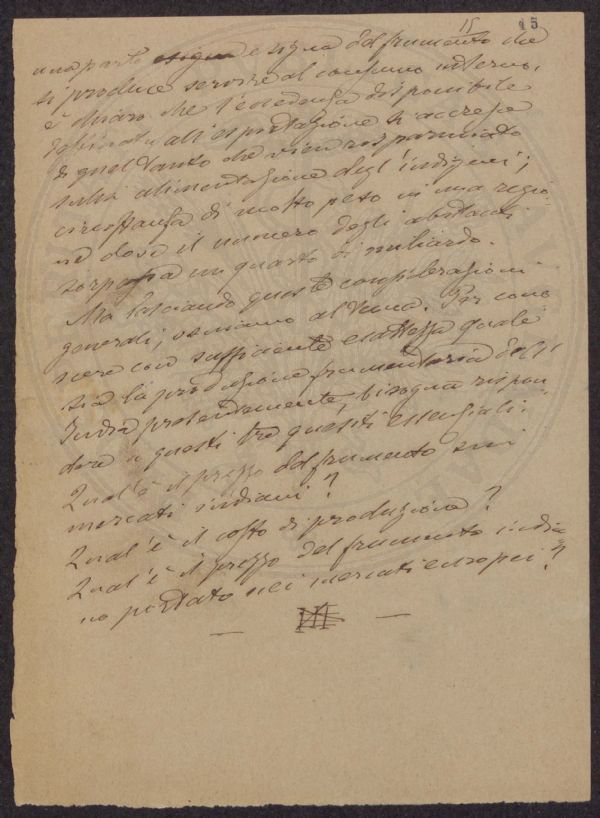 15 15
una parte esigua del frumento che
si produce servisse al consumo interno,
è chiaro che l'eccedenza disponibile
all'esportazione si accresce
di quel tanto che vien risparmiato
sulla alimentazione degl'indigeni;
circostanza di molto peso in una regio-
ne dove il numero degli abitanti
sorpassa un quarto di miliardo.
Ma lasciando queste considerazioni
generali, veniamo al tema. Per cono-
scere con sufficiente esattezza quale
sia la produzione frumentaria dell'
India presentemente, bisogna rispon-
dere a questi tre quesiti essenziali:
Qual'è il prezzo del frumento sui
mercati indiani?
Qual'è il costo di produzione?
Qual'è il prezzo del frumento india-
no portato nei mercati europei?